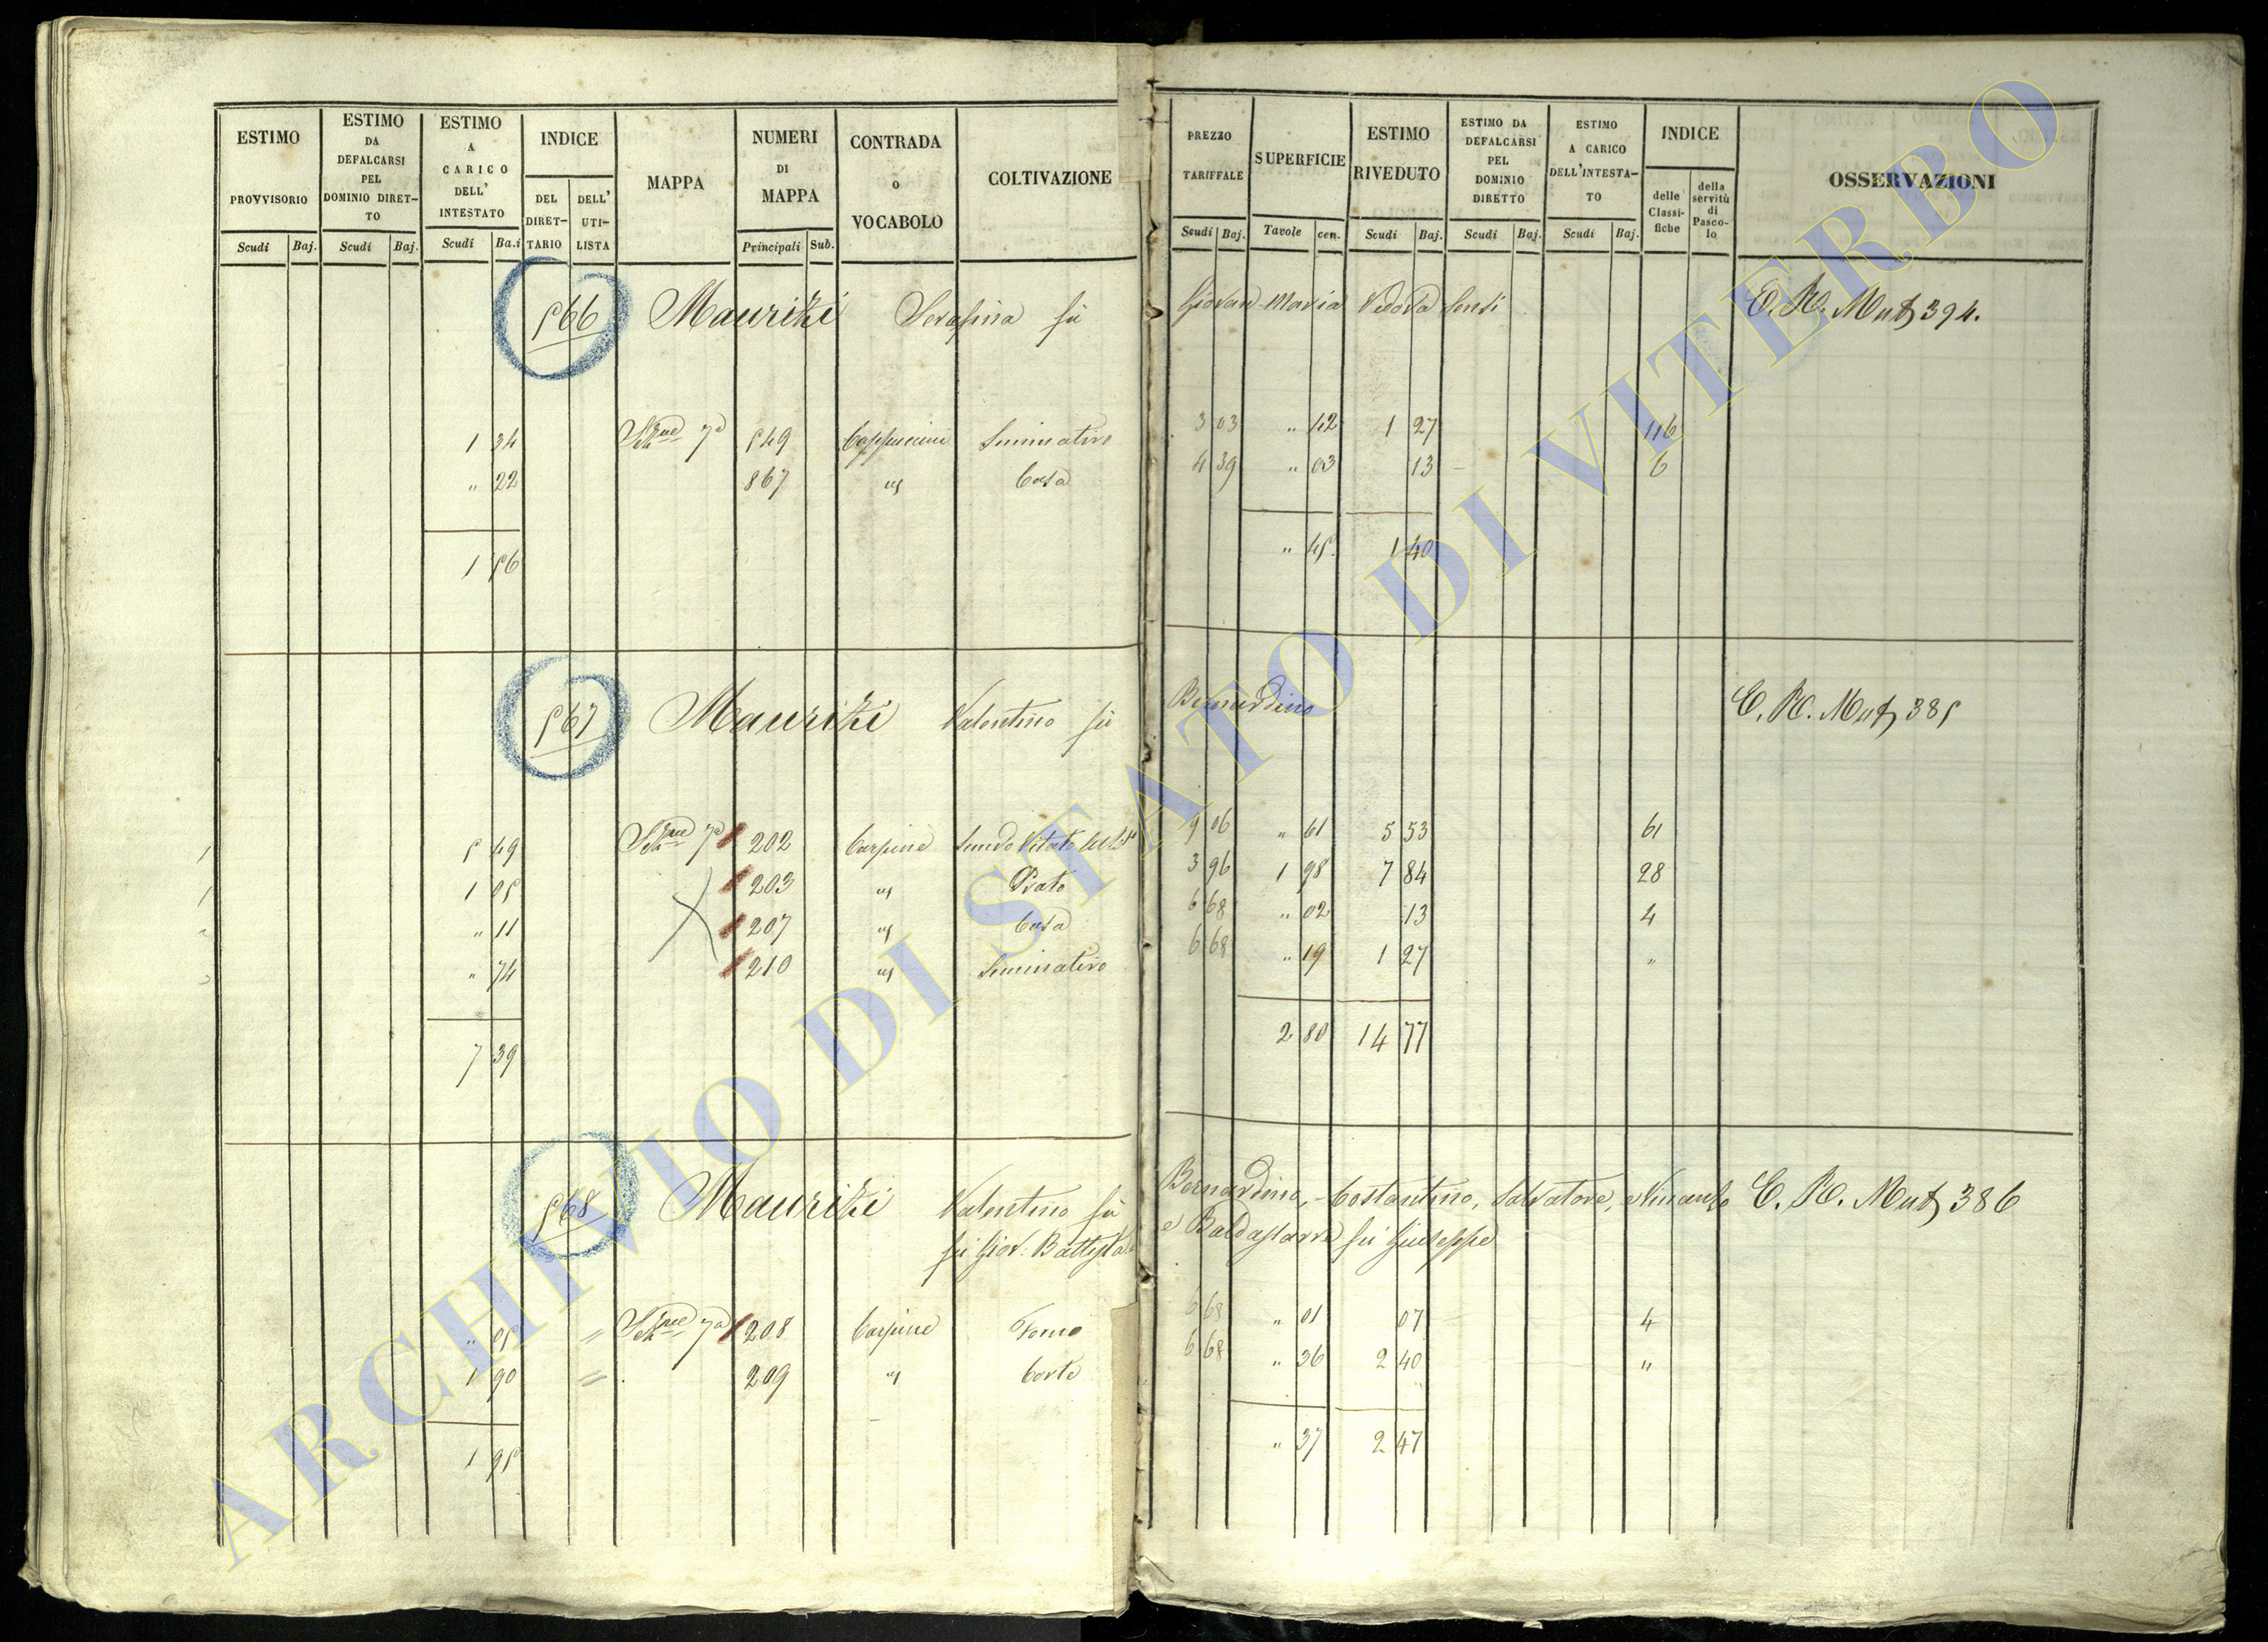 ESTIMO PROVVISORIO Scudi Baj.
ESTIMO DA DEFALCARSI PEL DOMINIO DIRET-TO Scudi Baj.
ESTIMO A CARICO DELL' INTESTATO Scudi Ba.i
INDICE DEL DIRET-TARIO DELL' UTI-LISTA
MAPPA
NUMERI DI MAPPA Principali Sub.
CONTRADA O VOCABOLO
COLTIVAZIONE
PREZZO TARIFFALE Scudi Baj.
SUPERFICIE Tavole cen.
ESTIMO RIVEDUTO Scudi Baj.
ESTIMO DA DEFALCARSI PEL DOMINIO DIRETTO Scudi Baj.
ESTIMO A CARICO DELL'INTESTA-TO Scudi Baj.
INDICE delle Classi-fiche della servitù di Pasco-lo
OSSERVAZIONI
566 Maurizi Serafina fù Giovan Maria Vedova Sensi 394.
1 34 7a 549 Cappuccini Seminativo 3 03 " 42 1 27 116
" 22 867 Casa 4 39 " 03 13 6
1 56 " 45 1 40
567 Maurizi Valentino fù Bernardino 385
5 49 7a 202 Carpine 9 06 " 61 5 53 61
1 05 203 Prato 3 96 1 98 7 84 28
" 11 207 Casa 6 68 " 02 13 4
" 74 210 Seminativo 6 68 " 19 1 27 "
7 39 2 80 14 77
568 Maurizi Valentino fù Bernardino, Costantino, Salvatore, e Vincenzo 386
fù Giov: Battista e Baldassarre fù Giuseppe
" 05 7a 208 Carpine Forno 6 68 " 01 07 4
1 90 209 Corte 6 68 " 36 2 40 "
1 95 " 37 2 47
ARCHIVIO DI STATO DI VITERBO